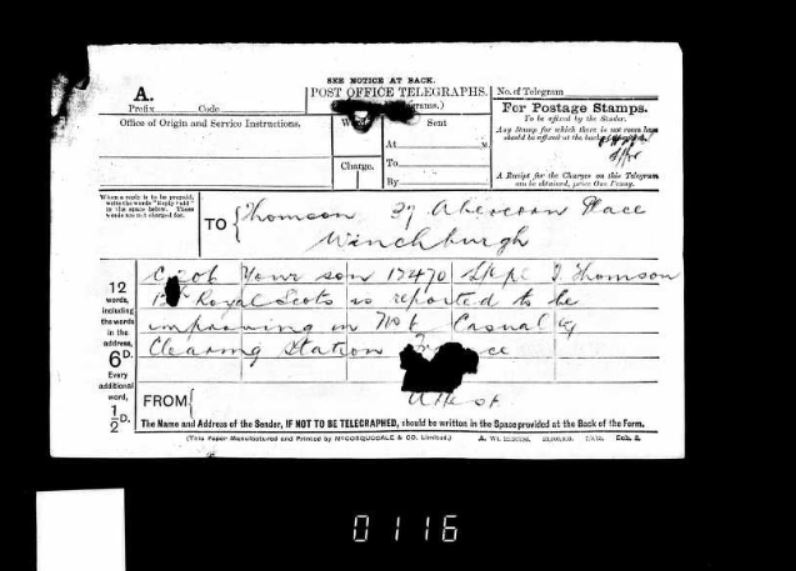 SEE NOTICE AT BACK.
A.
POST OFFICE TELEGRAPHS.
No. of Telegram
Prefix Code
For Postage Stamps.
To be affixed by the Sender.
Any Stamp for which there is not room here
should be affixed at the back
A Receipt for the Charges on this Telegram
can be obtained, price One Penny.
Office of Origin and Service Instructions.
Sent
At M.
To
By
Charge.
When a reply is to be prepaid,
write the words "Reply Paid"
in the space below. These
words are not charged for.
TO Thomson 27 Place
Winchburgh
Your son 17470 L/Cpl Thomson
Royal Scots is reported to be
improving in No 6 Casualty
Clearing Station
12
words,
including
the words
in the
address,
6D.
Every
additional
word,
1/2D.
FROM
The Name and Address of the Sender, IF NOT TO BE TELEGRAPHED, should be written in the Space provided at the Back of the Form.
(This Paper Manufactured and Printed by McCORQUODALE & CO. Limited.)
0116